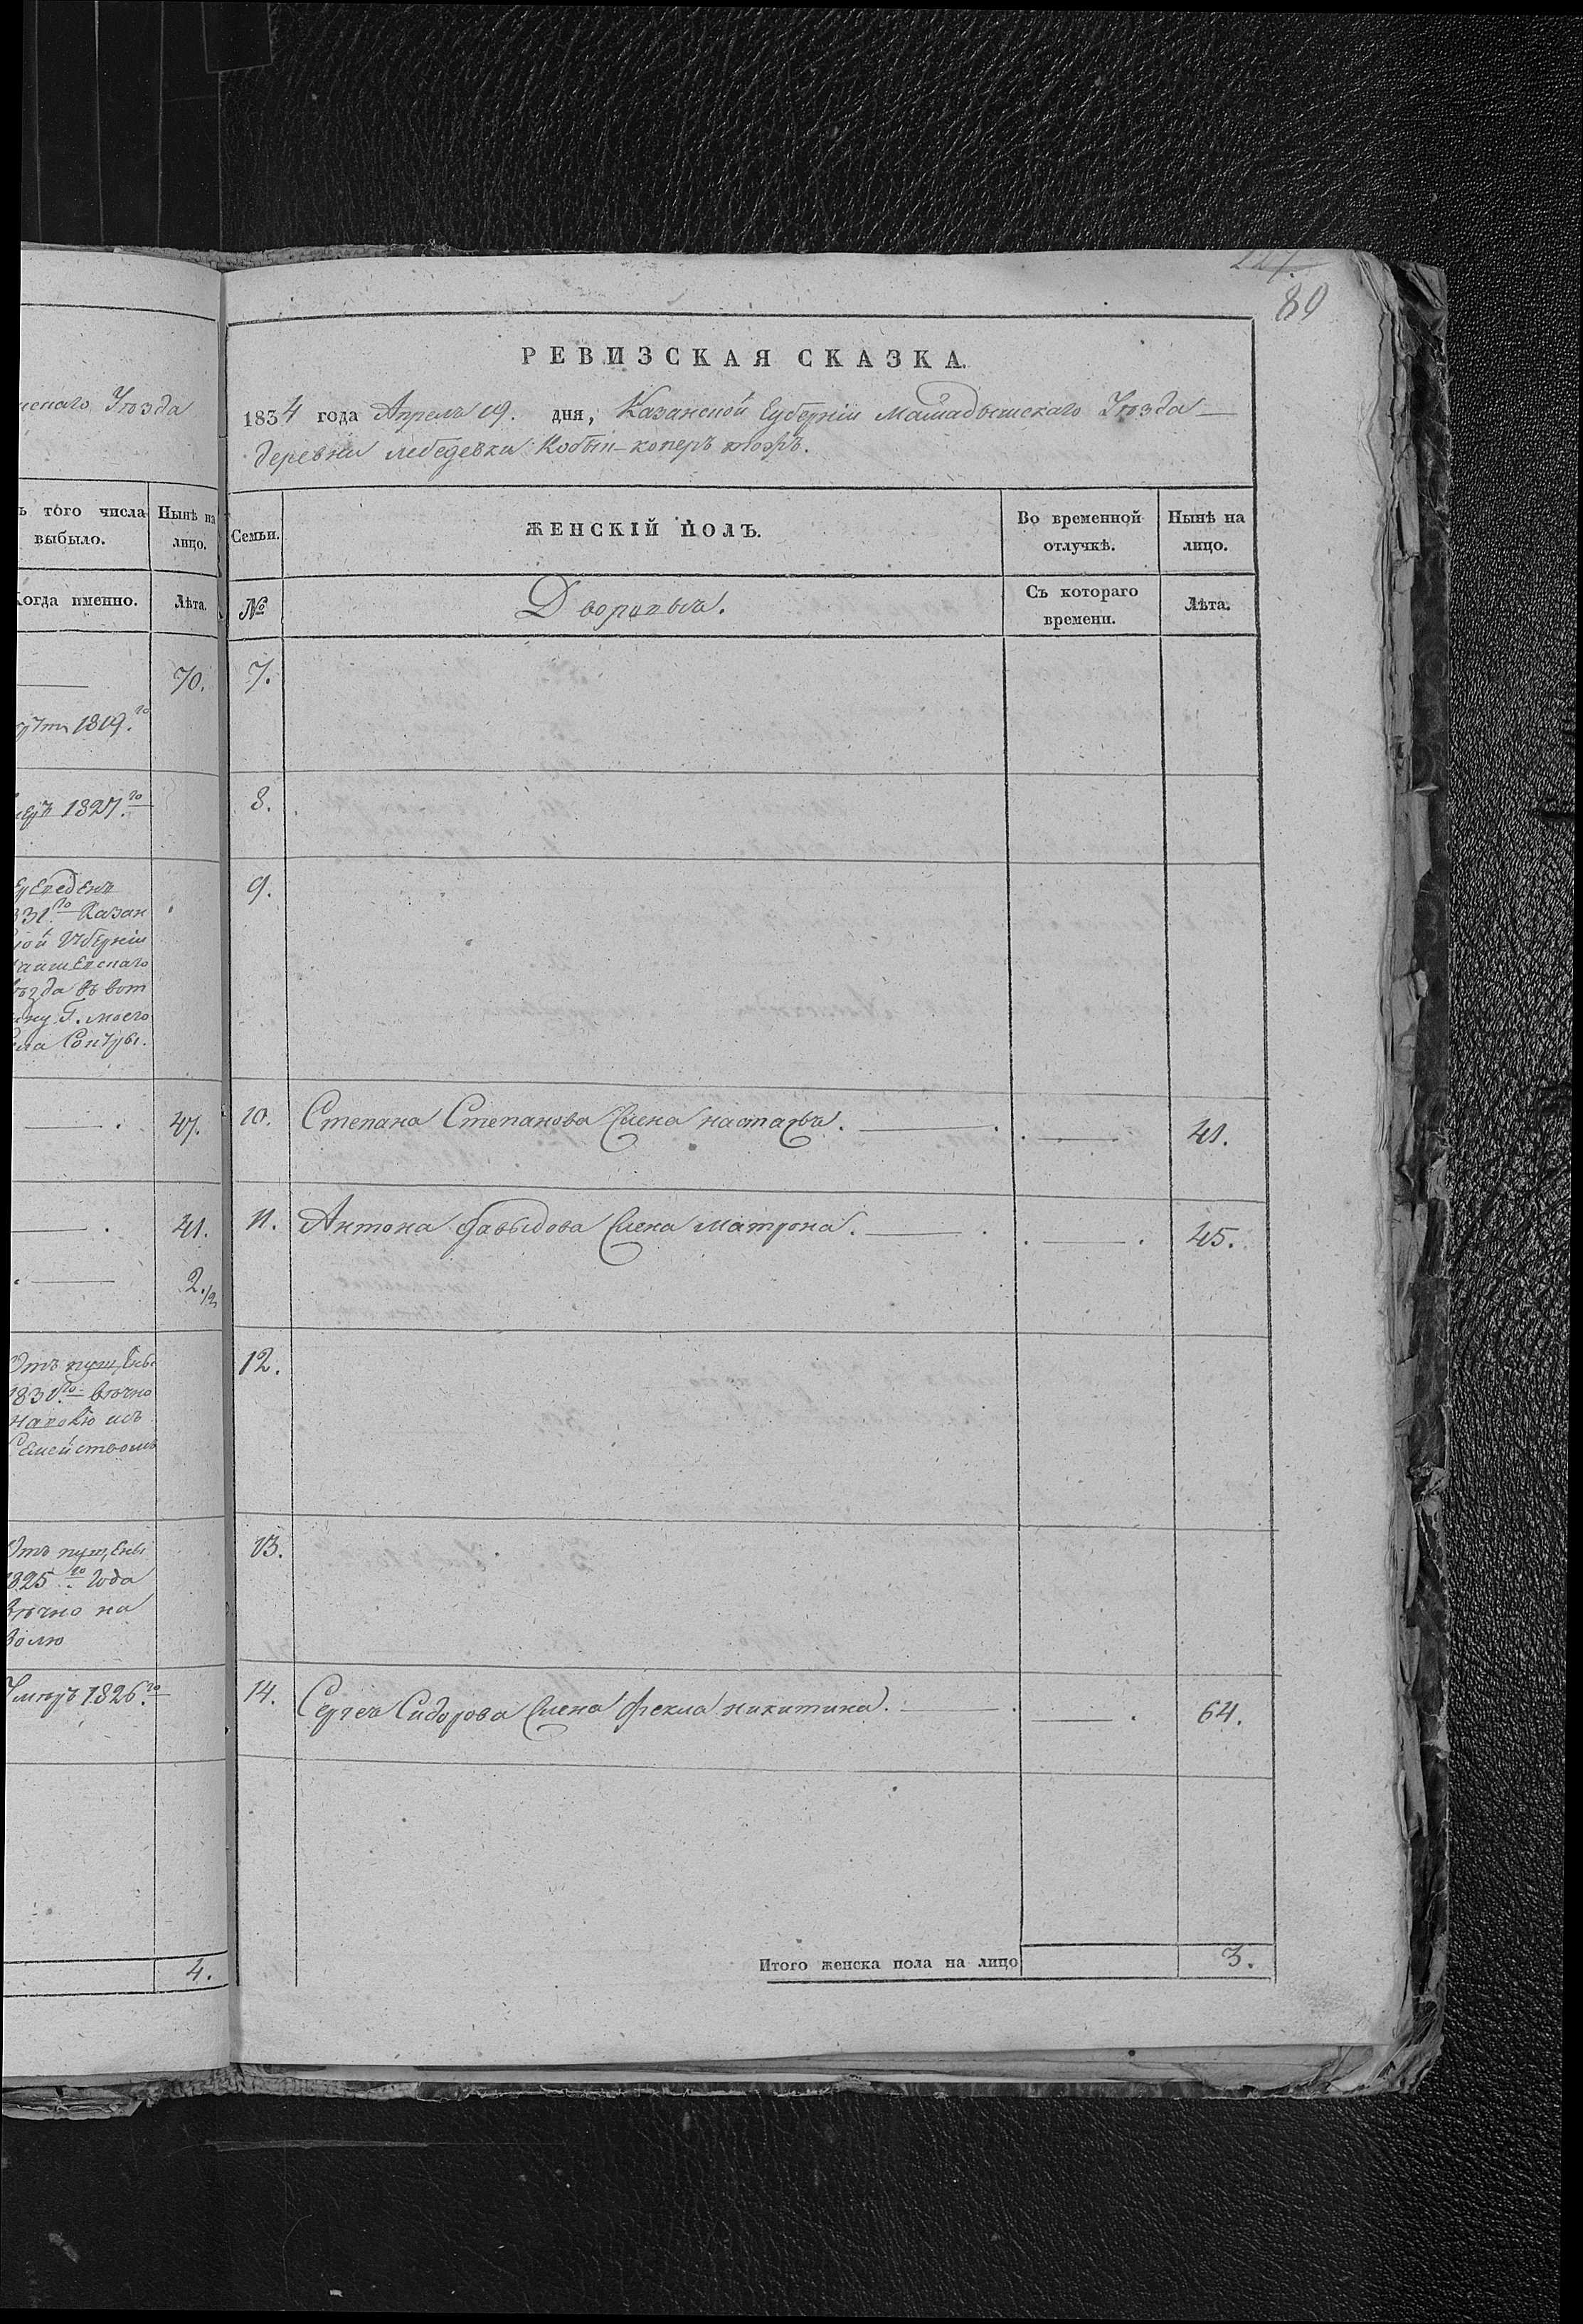 89
снаго Уѣзда
ъ того числа выбыло.
Нынѣ на лицо.
Когда именно.
Лѣта.
70.
1819.го
1827.го
831го Казан
ной Губерніи
аишевскаго
ѣзда въ вот
ину Г. моего
ела
47.
41.
2.1/2
Отъ пущены
1831го вѣчно
на волю изъ
Семействомъ
Отъ пущены
1825го Года
вѣчно на
волю
Умеръ 1826.го
4.
РЕВИЗСКАЯ СКАЗКА.
1834 года Апреля 19. дня, Казанской Губерніи Мамадышскаго Уѣзда
деревни Лебедевки
Семьи.
ЖЕНСКІЙ ПОЛЪ.
Во временной отлучкѣ.
Нынѣ на лицо.
№
Дворовыя.
Съ котораго времени.
Лѣта.
7.
8.
9.
10. Степана Степанова Жена настасья. 41.
11. Антона давыдова Жена матрона. 45.
12.
13.
14. Сергея Сидорова Жена фекла никитина. 64.
Итого женска пола на лицо 3.